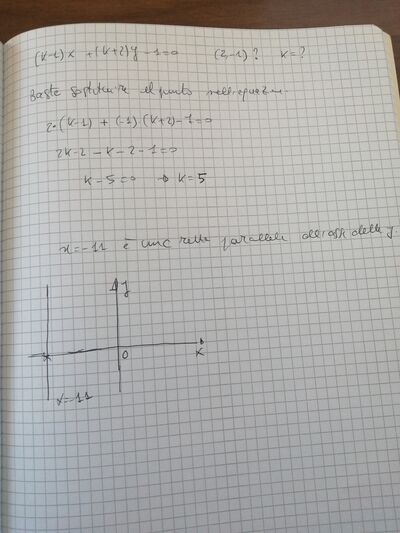 (k-1)x + (k+2)y - 1 = 0 (2,-1)? k=?
Basta sostituire il punto nell'equazione.
2•(k-1) + (-1)(k+2) - 1 = 0
2k - 2 - k - 2 - 1 = 0
k - 5 = 0 → k = 5
x = -11 è una retta parallela all'asse delle y.
y
O
x
x = -11